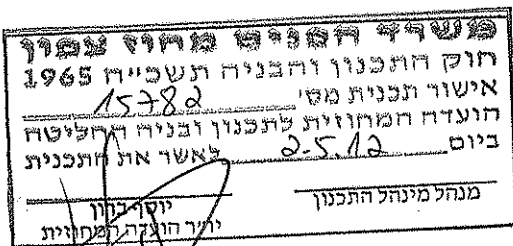 משרד הפנים מחוז צפון
חוק התכנון והבניה תשכ"ה 1965
אישור תכנית מס' 15782
הועדה המחוזית לתכנון ובניה החליטה
ביום 2.5.12 לאשר את התכנית
מנהל מינהל התכנון
יוסף ברון
יו"ר הועדה המחוזית